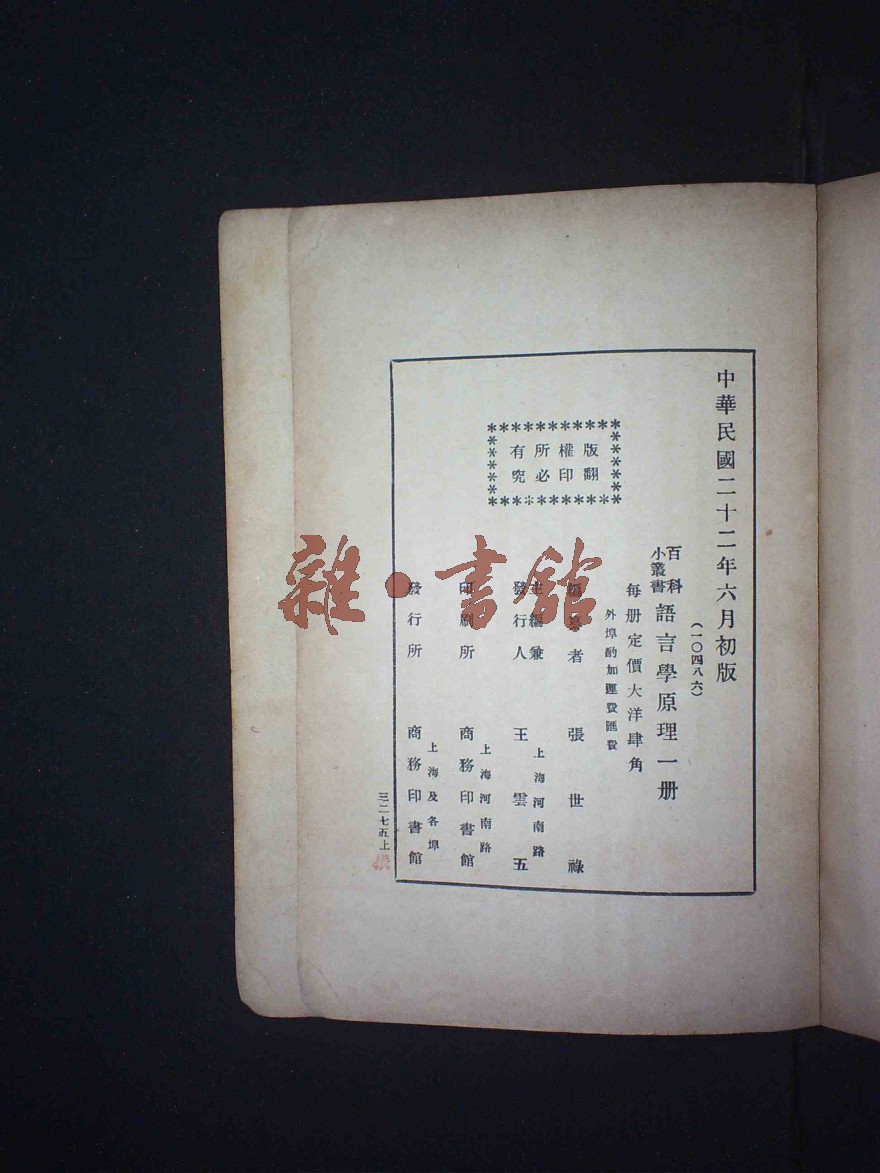 中華民國二十二年六月初版
(一〇四八六)
百科
小叢書
語言學原理一册
每册定價大洋肆角
外埠酌加運費匯費
版翻
權印
所必
有究
編纂者 張世祿
主編兼
發行人
上海河南路
王雲五
上海河南路
印刷所 商務印書館
上海及各埠
發行所 商務印書館
三二七五上
雜·書館